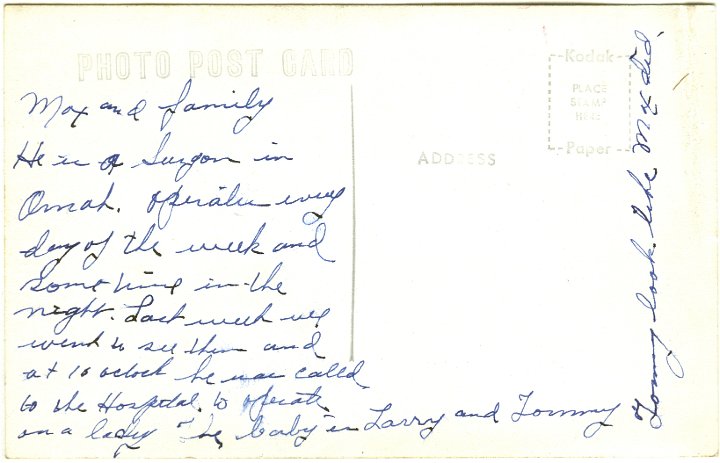 PHOTO POST CARD
Kodak
PLACE
STAMP
HERE
Paper
ADDRESS
Max and family
He is a Surgon in
Omah. Operates every
day of the week and
some time in the
night. Last week we
went to see them and
at 10 oclock he was called
to the Hospital to operate
on a lady The baby is Larry and Tommy
Tommy look like Max did